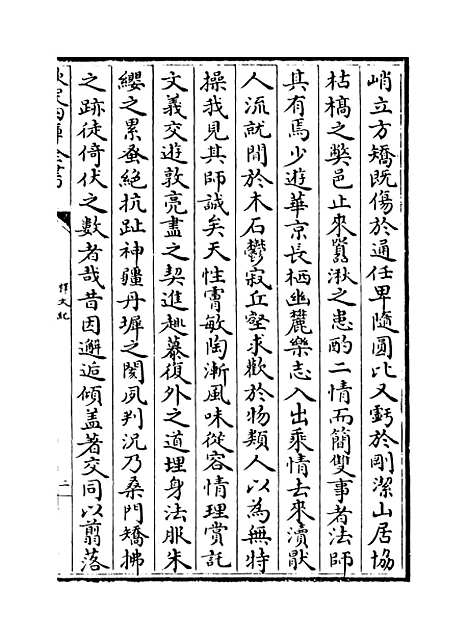 峭立方矯既傷於通任卑隨圓比又虧於剛潔山居協
枯槁之弊邑止來囂湫之患酌二情而簡雙事者法師
其有焉少遊華京長栖幽麓樂志入出乘情去來瀆猒
人流就閒於木石鬱寂丘壑求歡於物類人以為無特
操我見其師誠矣天性膏敏陶漸風味從容情理賞託
文義交遊敦亮盡之契進趣慕復外之道埋身法服朱
纓之累蚤絕抗趾神疆丹墀之闋夙判況乃桑門矯拂
之跡徒倚伏之數者哉昔因邂逅傾盖著交同以翦落
欽定四庫全書
釋文紀
二